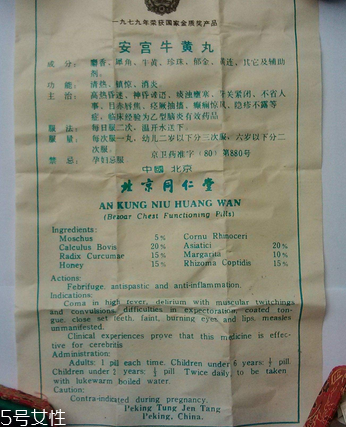 一九七九年荣获国家金质奖产品
安宫牛黄丸
成分：麝香、犀角、牛黄、珍珠、郁金、黄连、其它及辅助
剂。
功能：清热、镇惊、消炎
主治：高热昏迷、神昏谵语、痰浊壅塞、
关紧闭、不省人
事、目赤唇焦、痉厥抽搐、癫痫惊风、隐疹不露等
症，临床经验为乙型脑炎有效药品
服法：每日服二次、温开水送下。
服量：每次服一丸、幼儿二岁以下分三次服，六岁以下分二
次服。
京卫药准字（80）第880号
禁忌：孕妇忌服
中國 北京
北京同仁堂
AN KUNG NIU HUANG WAN
(Bezoar Chest Functioning Pills)
Ingredients:
Moschus 5% Cornu Rhinoceri
Calculus Bovis 20% Asiatici 20%
Radix Curcumae 15% Margarita 10%
Honey 15% Rhizoma Coptidis 15%
Actions:
Febrifuge, antispastic and anti-inflammation.
Indications:
Coma in high fever, delirium with muscular twitchings
and convulsions, difficulties in expectoration, coated ton-
gue, close set teeth, faint, burning eyes and lips, measles
unmanifested.
Clinical experiences prove that this medicine is effec-
tive for cerebritis
Administration:
Adults: 1 pill each time. Children under 6 years: ½ pill.
Children under 2 years: ⅓ pill Twice daily, to be taken
with lukewarm boiled water.
Caution:
Contra-indicated during pregnancy.
Peking Tung Jen Tang
Peking, China.
5号女性